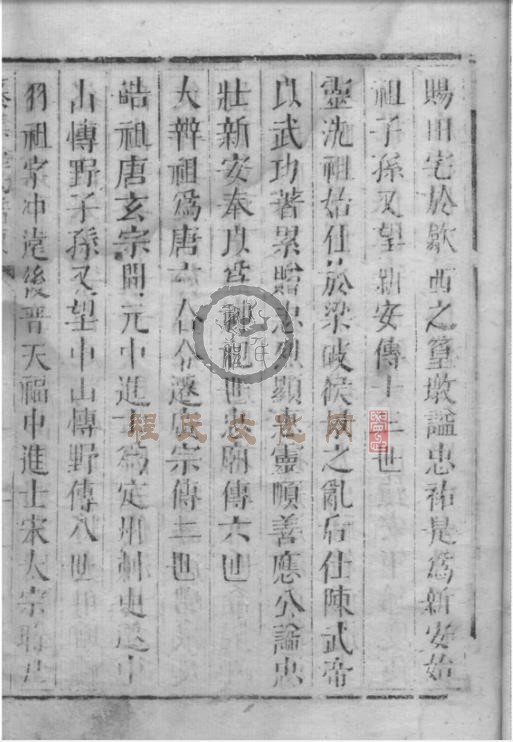 賜田宅於歙西之篁墩謚忠祐是爲新安始
祖子孫又望新安傳十三世
靈洗祖始仕於梁破侯景之亂后仕陳武帝
以武功著累贈忠烈顯惠靈順善應公謚忠
壯新安奉以爲神祀世忠廟傳六世
大辯祖爲唐 遷廣宗傳三世
皓祖唐玄宗開元中進士爲定州刺史遂中
山傳野子孫又望中山傳野傳八世
羽祖字冲遠後晋天福中進士宋太宗時
程氏文化网